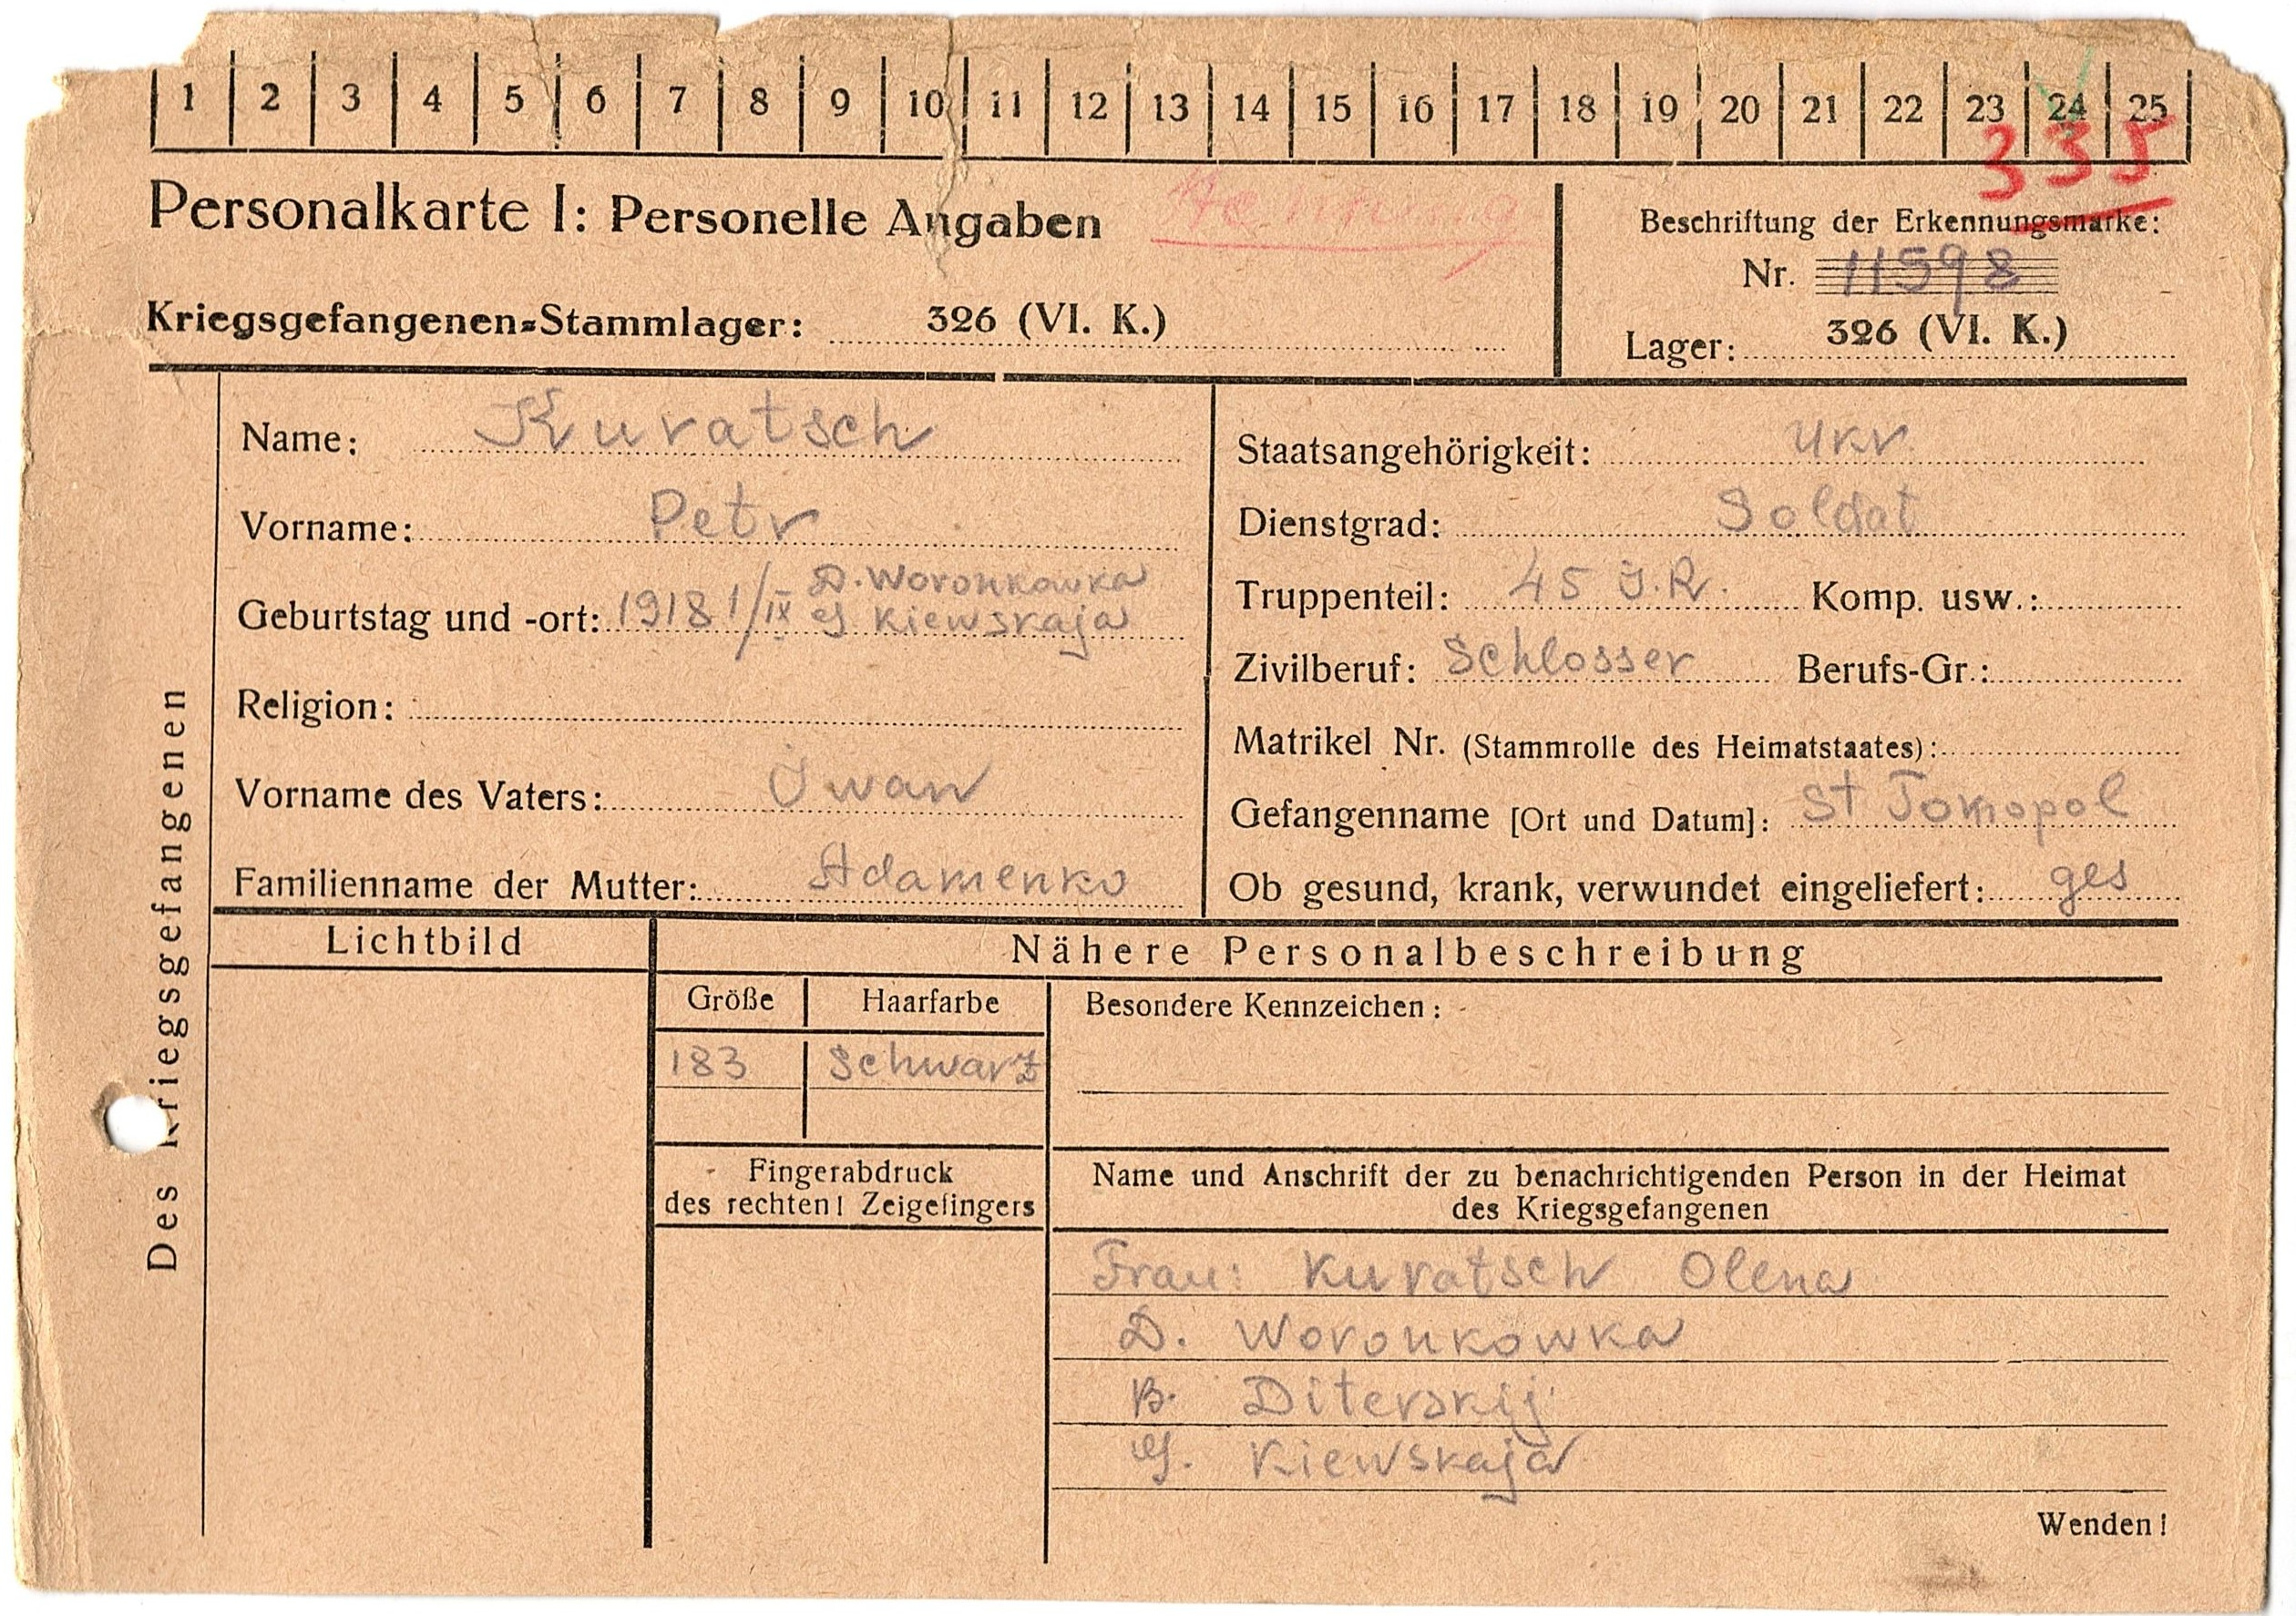 1 2 3 4 5 6 7 8 9 10 11 12 13 14 15 16 17 18 19 20 21 22 23 24 25
335
Personalkarte I: Personelle Angaben
Beschriftung der Erkennungsmarke:
Nr. 11598
Kriegsgefangenen=Stammlager: 326 (VI. K.)
Lager: 326 (VI. K.)
Des Kriegsgefangenen
Name: Kuratsch
Vorname: Petr
Geburtstag und -ort: 1918 1/IX D. Woronkowka
G Kiewskaja
Religion:
Vorname des Vaters: Iwan
Familienname der Mutter: Adamenko
Staatsangehörigkeit: Ukr
Dienstgrad: Soldat
Truppenteil: 45 I.R. Komp. usw.:
Zivilberuf: Schlosser Berufs-Gr.:
Matrikel Nr. (Stammrolle des Heimatstaates):
Gefangenname [Ort und Datum]: St Tomopol
Ob gesund, krank, verwundet eingeliefert: ges
Lichtbild
Nähere Personalbeschreibung
Größe Haarfarbe
183 Schwarz
Besondere Kennzeichen:
Fingerabdruck
des rechten! Zeigefingers
Name und Anschrift der zu benachrichtigenden Person in der Heimat
des Kriegsgefangenen
Frau: Kuratsch Olena
D. Woronkowka
B. Diterskij
G. Kiewskaja
Wenden!